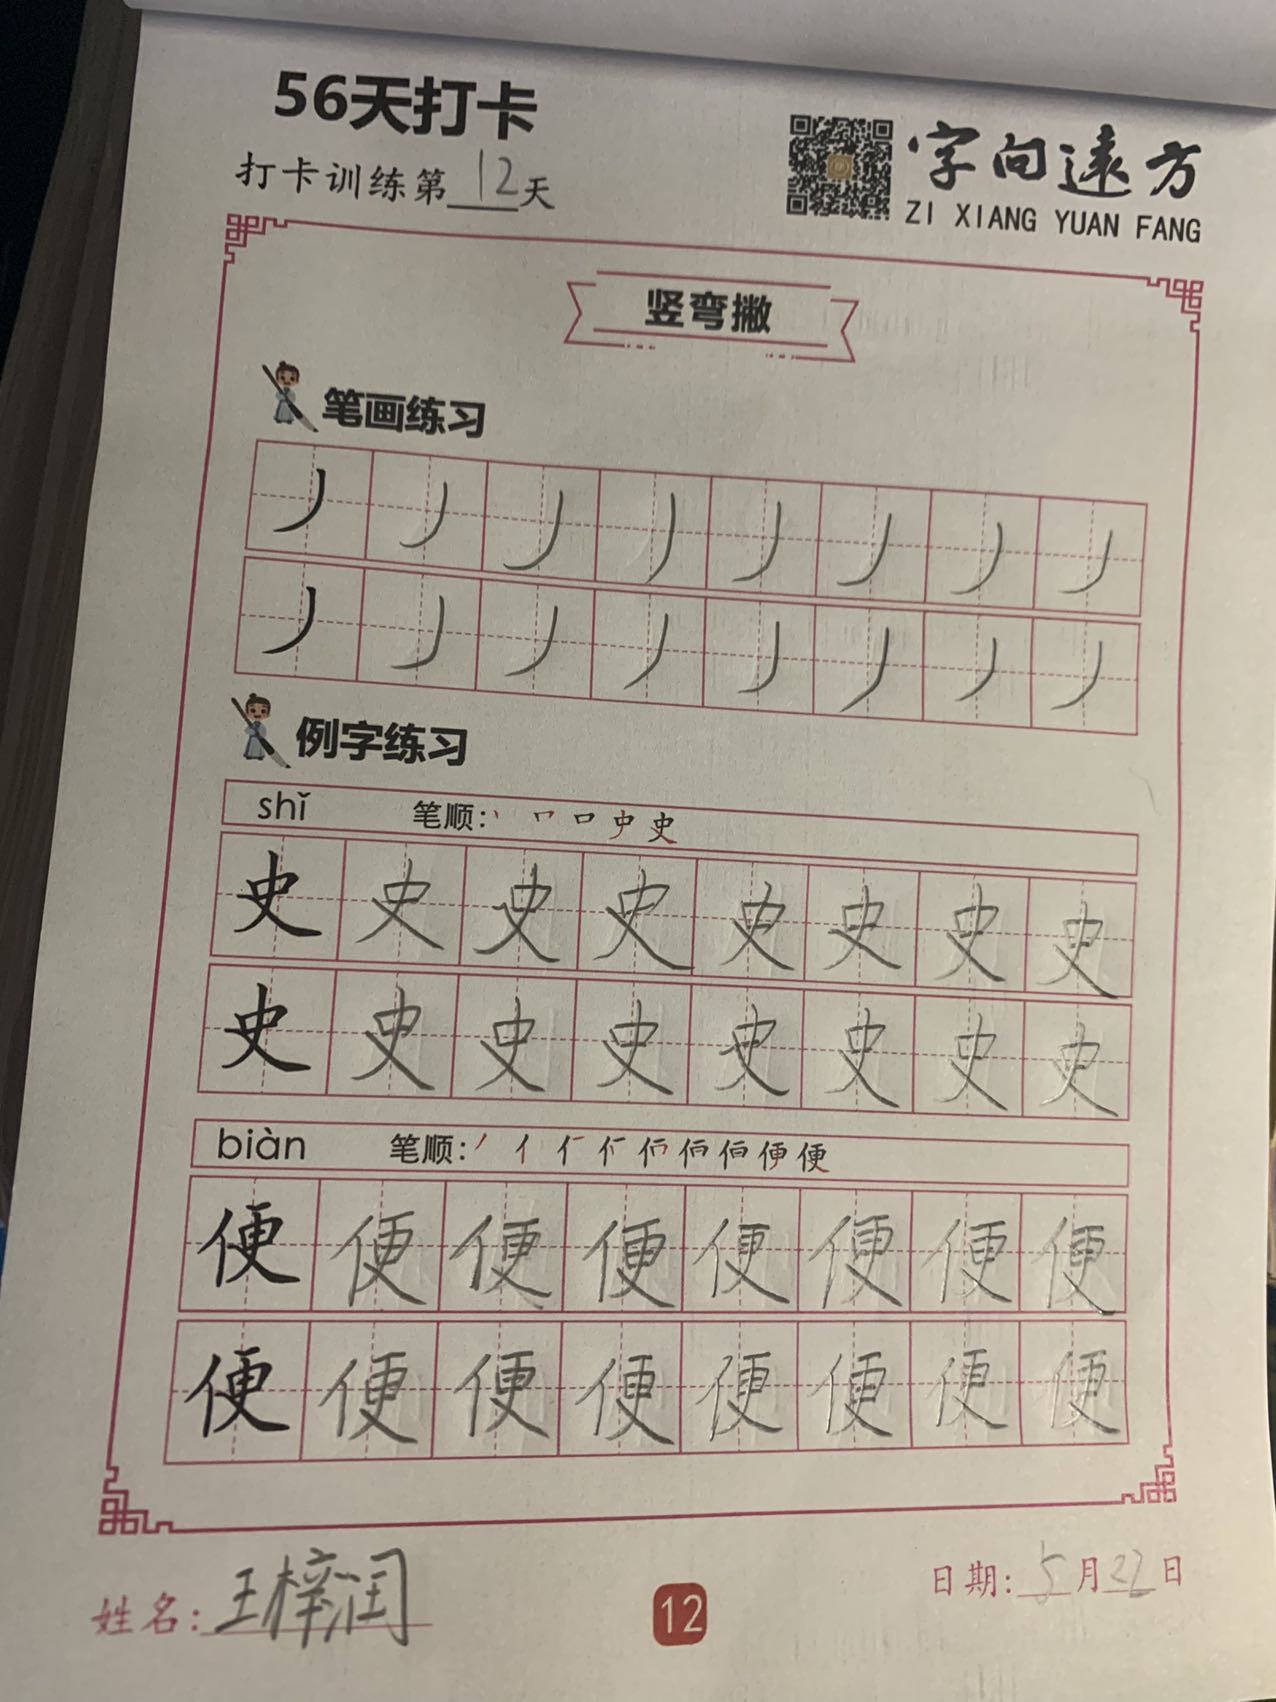 56天打卡
打卡训练第12天
字向远方
ZI XIANG YUAN FANG
竖弯撇
笔画练习
丿 丿 丿 丿 丿 丿 丿 丿
丿 丿 丿 丿 丿 丿 丿 丿
例字练习
shǐ 笔顺: 丶 口 史
史 史 史 史 史 史 史 史
史 史 史 史 史 史 史 史
biàn 笔顺: 丿 亻 便
便 便 便 便 便 便 便 便
便 便 便 便 便 便 便 便
姓名: 王梓润
12
日期: 5月22日